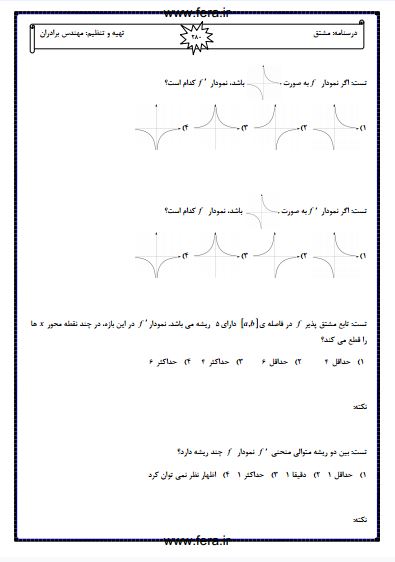 www.fera.ir
درسنامه: مشتق
۲۸۰
تهیه و تنظیم: مهندس برادران
تست: اگر نمودار f به صورت باشد، نمودار f' کدام است؟
۱) ۲) ۳) ۴)
تست: اگر نمودار f' به صورت باشد، نمودار f کدام است؟
۱) ۲) ۳) ۴)
تست: تابع مشتق پذیر f در فاصله ی [a,b] دارای ۵ ریشه می باشد. نمودار f' در این بازه، در چند نقطه محور x ها
را قطع می کند؟
۱) حداقل ۴ ۲) حداقل ۶ ۳) حداکثر ۴ ۴) حداکثر ۶
نکته:
تست: بین دو ریشه متوالی منحنی f' نمودار f چند ریشه دارد؟
۱) حداقل ۱ ۲) دقیقا ۱ ۳) حداکثر ۱ ۴) اظهار نظر نمی توان کرد
نکته:
www.fera.ir